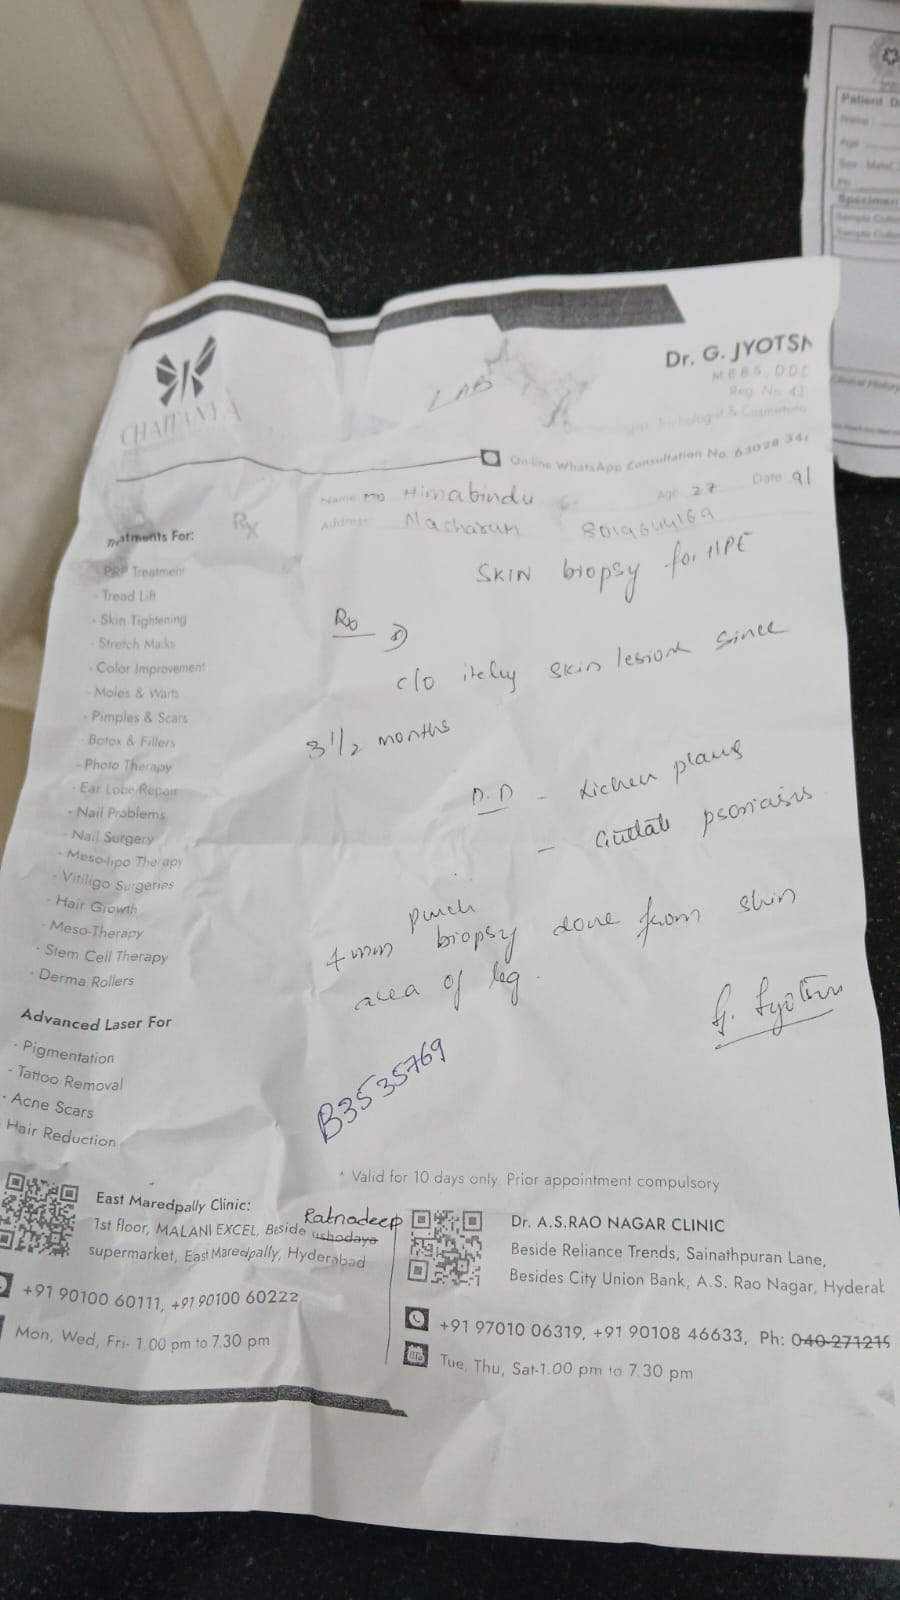 CHAITANYA
LAB
Dr. G. JYOTSN
MBBS, DDC
Reg. No. 43
Online WhatsApp Consultation No. 63028 34
Name Himabindu Age 27 Date 9/
Address 8019644169
Rx
SKIN biopsy for HPE
c/o itchy skin lesions since
3 1/2 months
D.D - Lichen planus
- Guttate psoriasis
4mm punch biopsy done from skin
area of leg.
G. Jyotsn
B3535769
Treatments For:
- PRP Treatment
- Tread Lift
- Skin Tightening
- Stretch Marks
- Color Improvement
- Moles & Warts
- Pimples & Scars
- Botox & Fillers
- Photo Therapy
- Ear Lobe Repair
- Nail Problems
- Nail Surgery
- Meso-lipo Therapy
- Vitiligo Surgeries
- Hair Growth
- Meso-Therapy
- Stem Cell Therapy
- Derma Rollers
Advanced Laser For
- Pigmentation
- Tattoo Removal
- Acne Scars
Hair Reduction
* Valid for 10 days only. Prior appointment compulsory
East Maredpally Clinic:
1st floor, MALANI EXCEL, Beside ushodaya Ratnadeep
supermarket, East Maredpally, Hyderabad
+91 90100 60111, +91 90100 60222
Mon, Wed, Fri- 1.00 pm to 7.30 pm
Dr. A.S.RAO NAGAR CLINIC
Beside Reliance Trends, Sainathpuran Lane,
Besides City Union Bank, A.S. Rao Nagar, Hyderab
+91 97010 06319, +91 90108 46633, Ph: 040-271215
Tue, Thu, Sat-1.00 pm to 7.30 pm
Patient D
Name :
Age
Sex : Male
Ph
Specimen
Sample Collec
Sample Collec
Clinical History